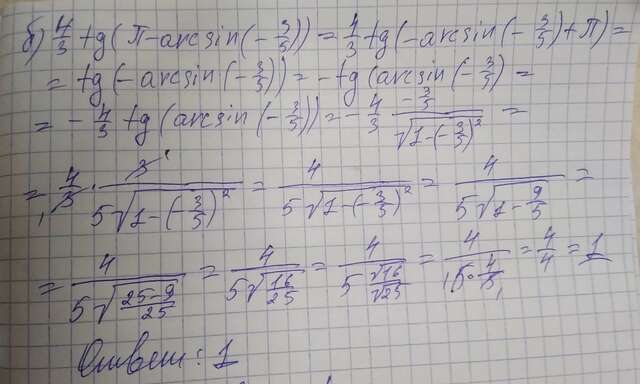 б) 4/3 tg(π-arcsin(-3/5)) = 4/3 tg(-arcsin(-3/5)+π) =
= tg(-arcsin(-3/5)) = -tg(arcsin(-3/5) =
= -4/3 tg(arcsin(-3/5)) = -4/3 (-3/5)/√(1-(-3/5)²) =
= 4/3 · 3/(5√(1-(-3/5)²)) = 4/(5√(1-(-3/5)²)) = 4/(5√(1-9/5)) =
= 4/(5√((25-9)/25)) = 4/(5√(16/25)) = 4/(5 √16/√25) = 4/(5·4/5) = 4/4 = 1
Ответ: 1